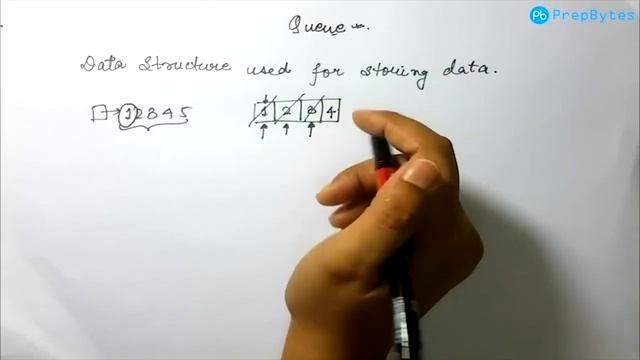 PrepBytes
Queue.
Data Structure used for storing data.
1 2 3 4 5
1 2 3 4